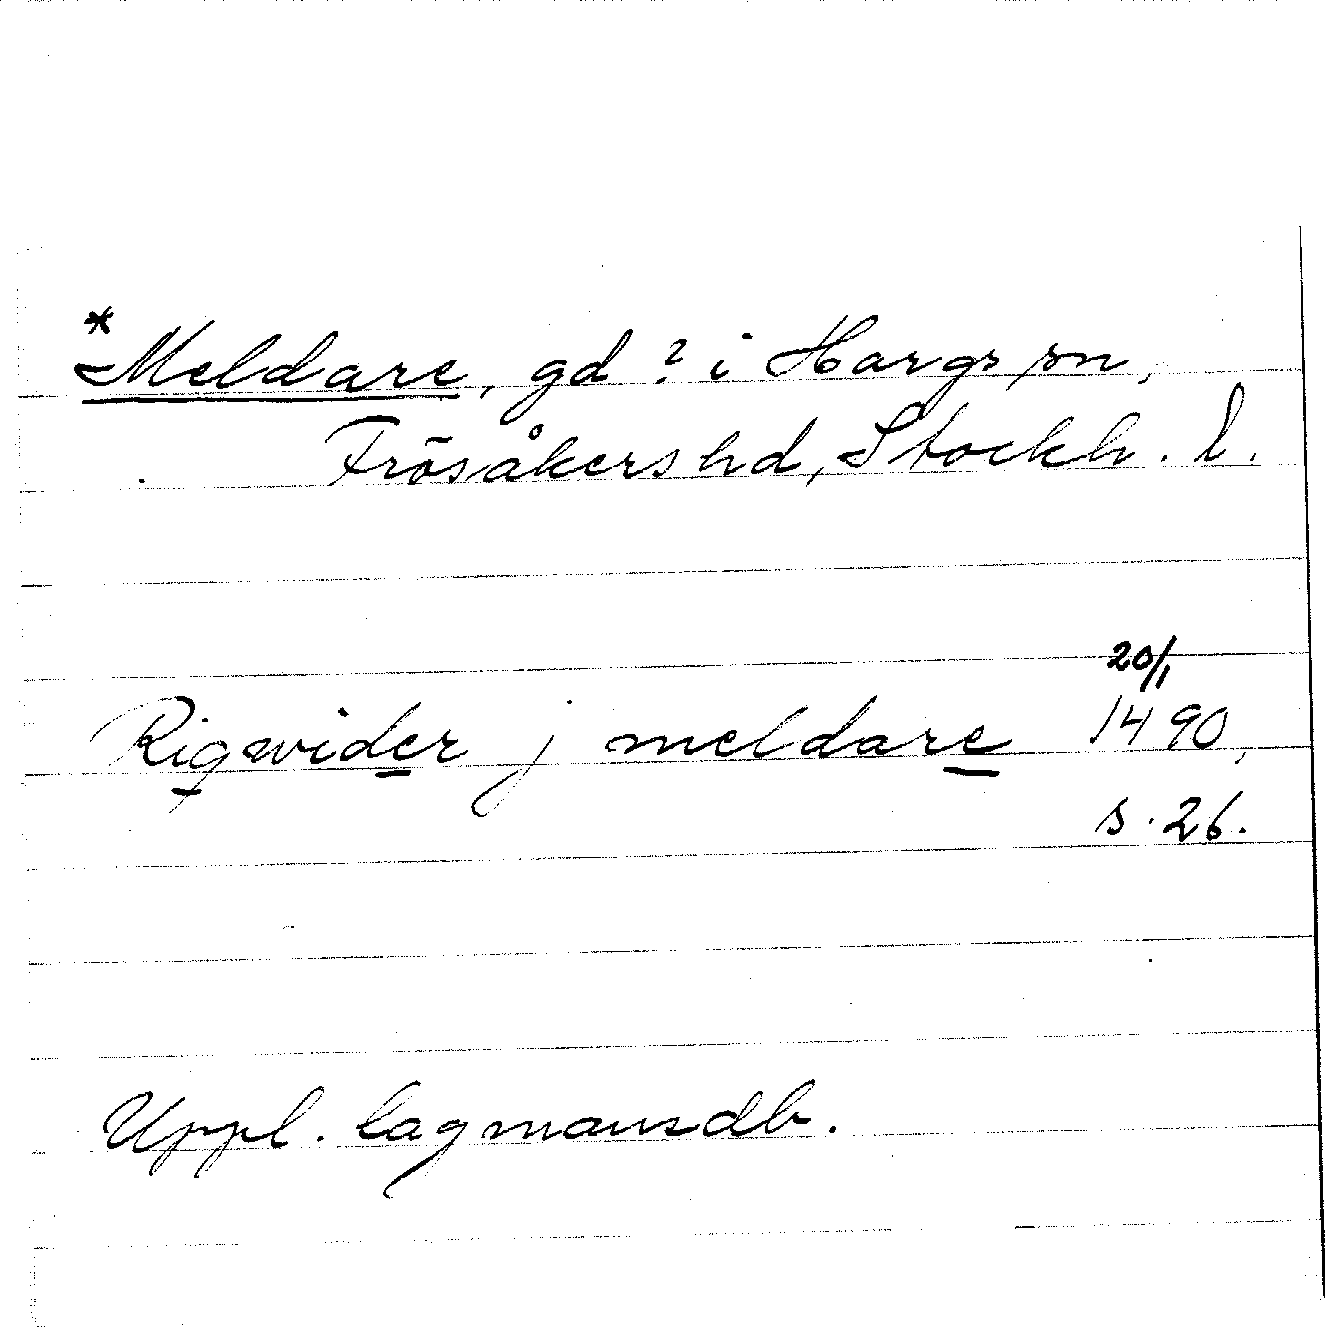 *Meldare, gd ? i Hargs sn,
Frösåkers hd, Stockh. l.
20/1
Riqwider j meldare 1490,
s. 26.
Uppl. lagmansdb.